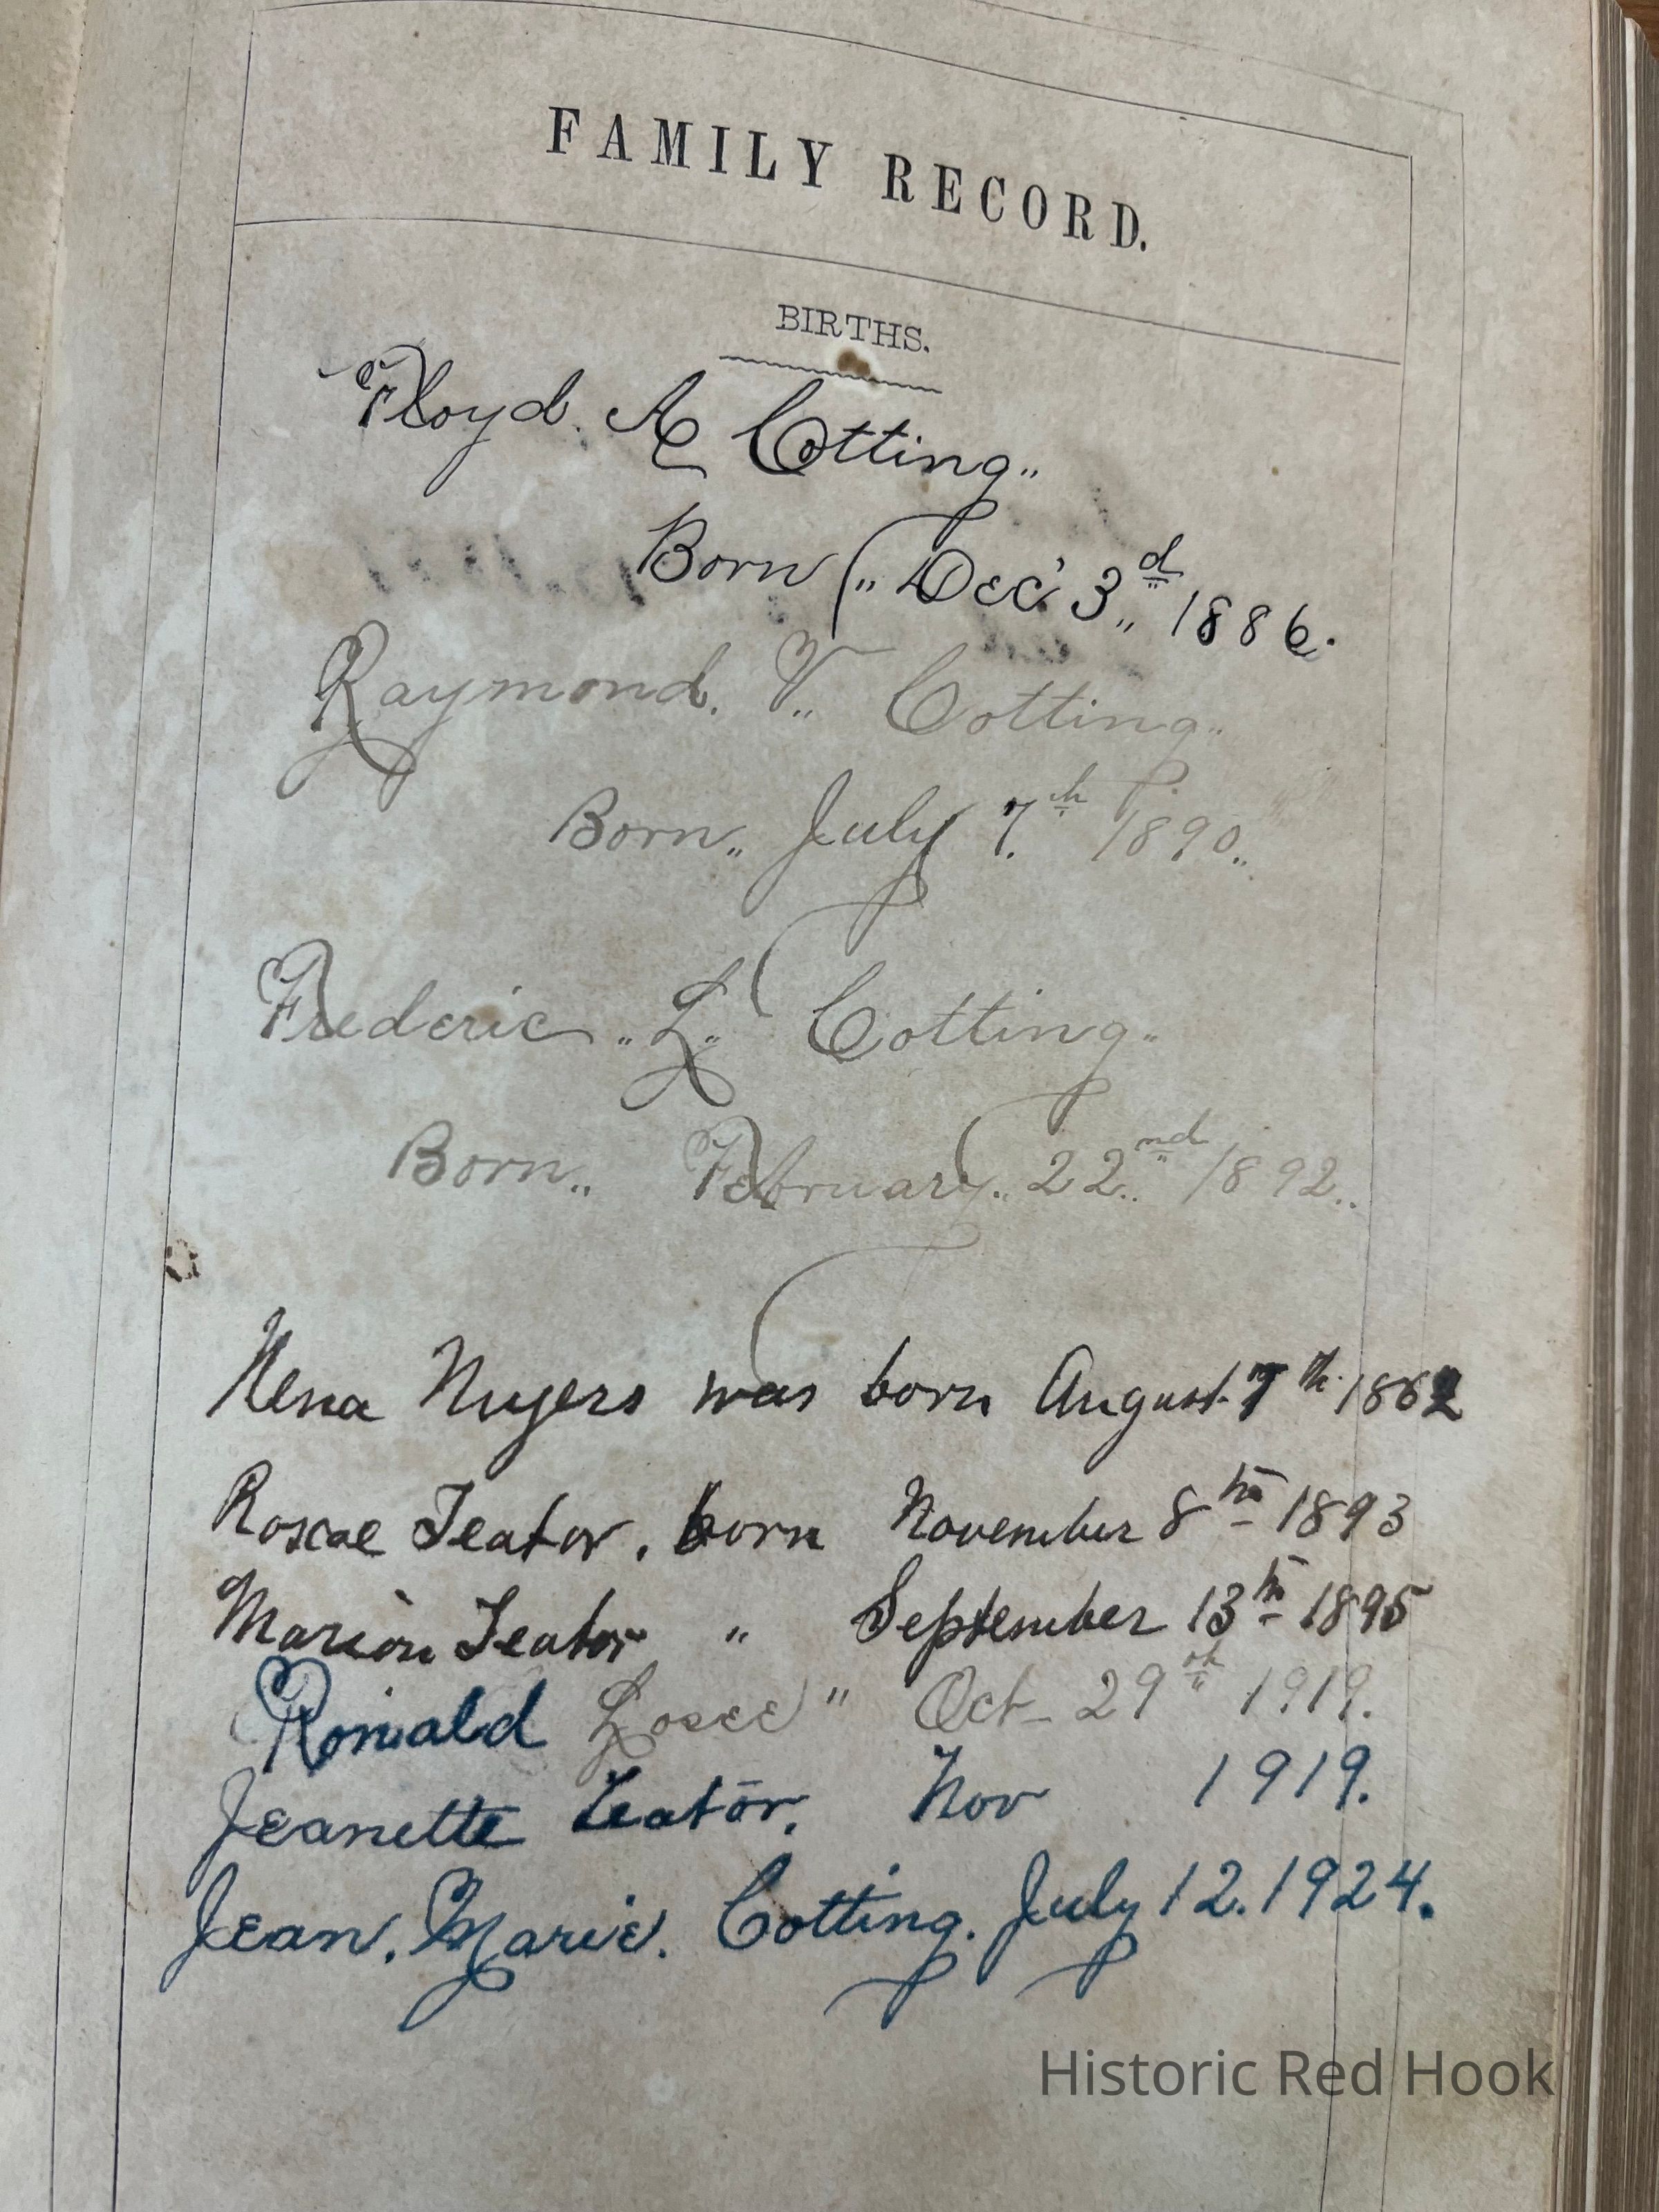 FAMILY RECORD.
BIRTHS.
Floyd. A Cotting„
Born „ Dec' 3„d 1886.
Raymond. V„ Cotting„
Born„ July 7.th 1890„
Frederic „L„ Cotting„
Born„ February„ 22„nd 1892„
Nena Nugers was born August 7th 1862
Roscoe Teator. born November 8th 1893
Marion Teator " September 13th 1895
Ronald Losee " Oct- 29th 1919.
Jeanette Teator. Nov 1919.
Jean. Marie. Cotting. July 12. 1924.
Historic Red Hook